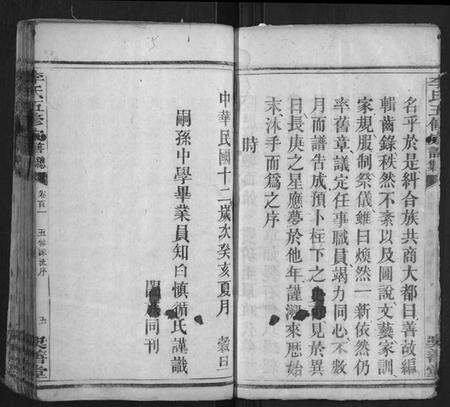 名乎於是糾合族共商大都曰善故編
輯齒錄秩然不紊以及圖說文藝家訓
家規服制祭儀雖曰煥然一新依然仍
率舊章議定任事職員竭力同心不數
月而譜告成預卜柱下之見於異
日長庚之星應夢於他年謹溯來歷始
末沐手而爲之序
時
中華民國十二歲次癸亥夏月穀旦
嗣孫中學畢業員知白慎循氏謹識
同刊
李氏五修
卷首一
五修源流序
五